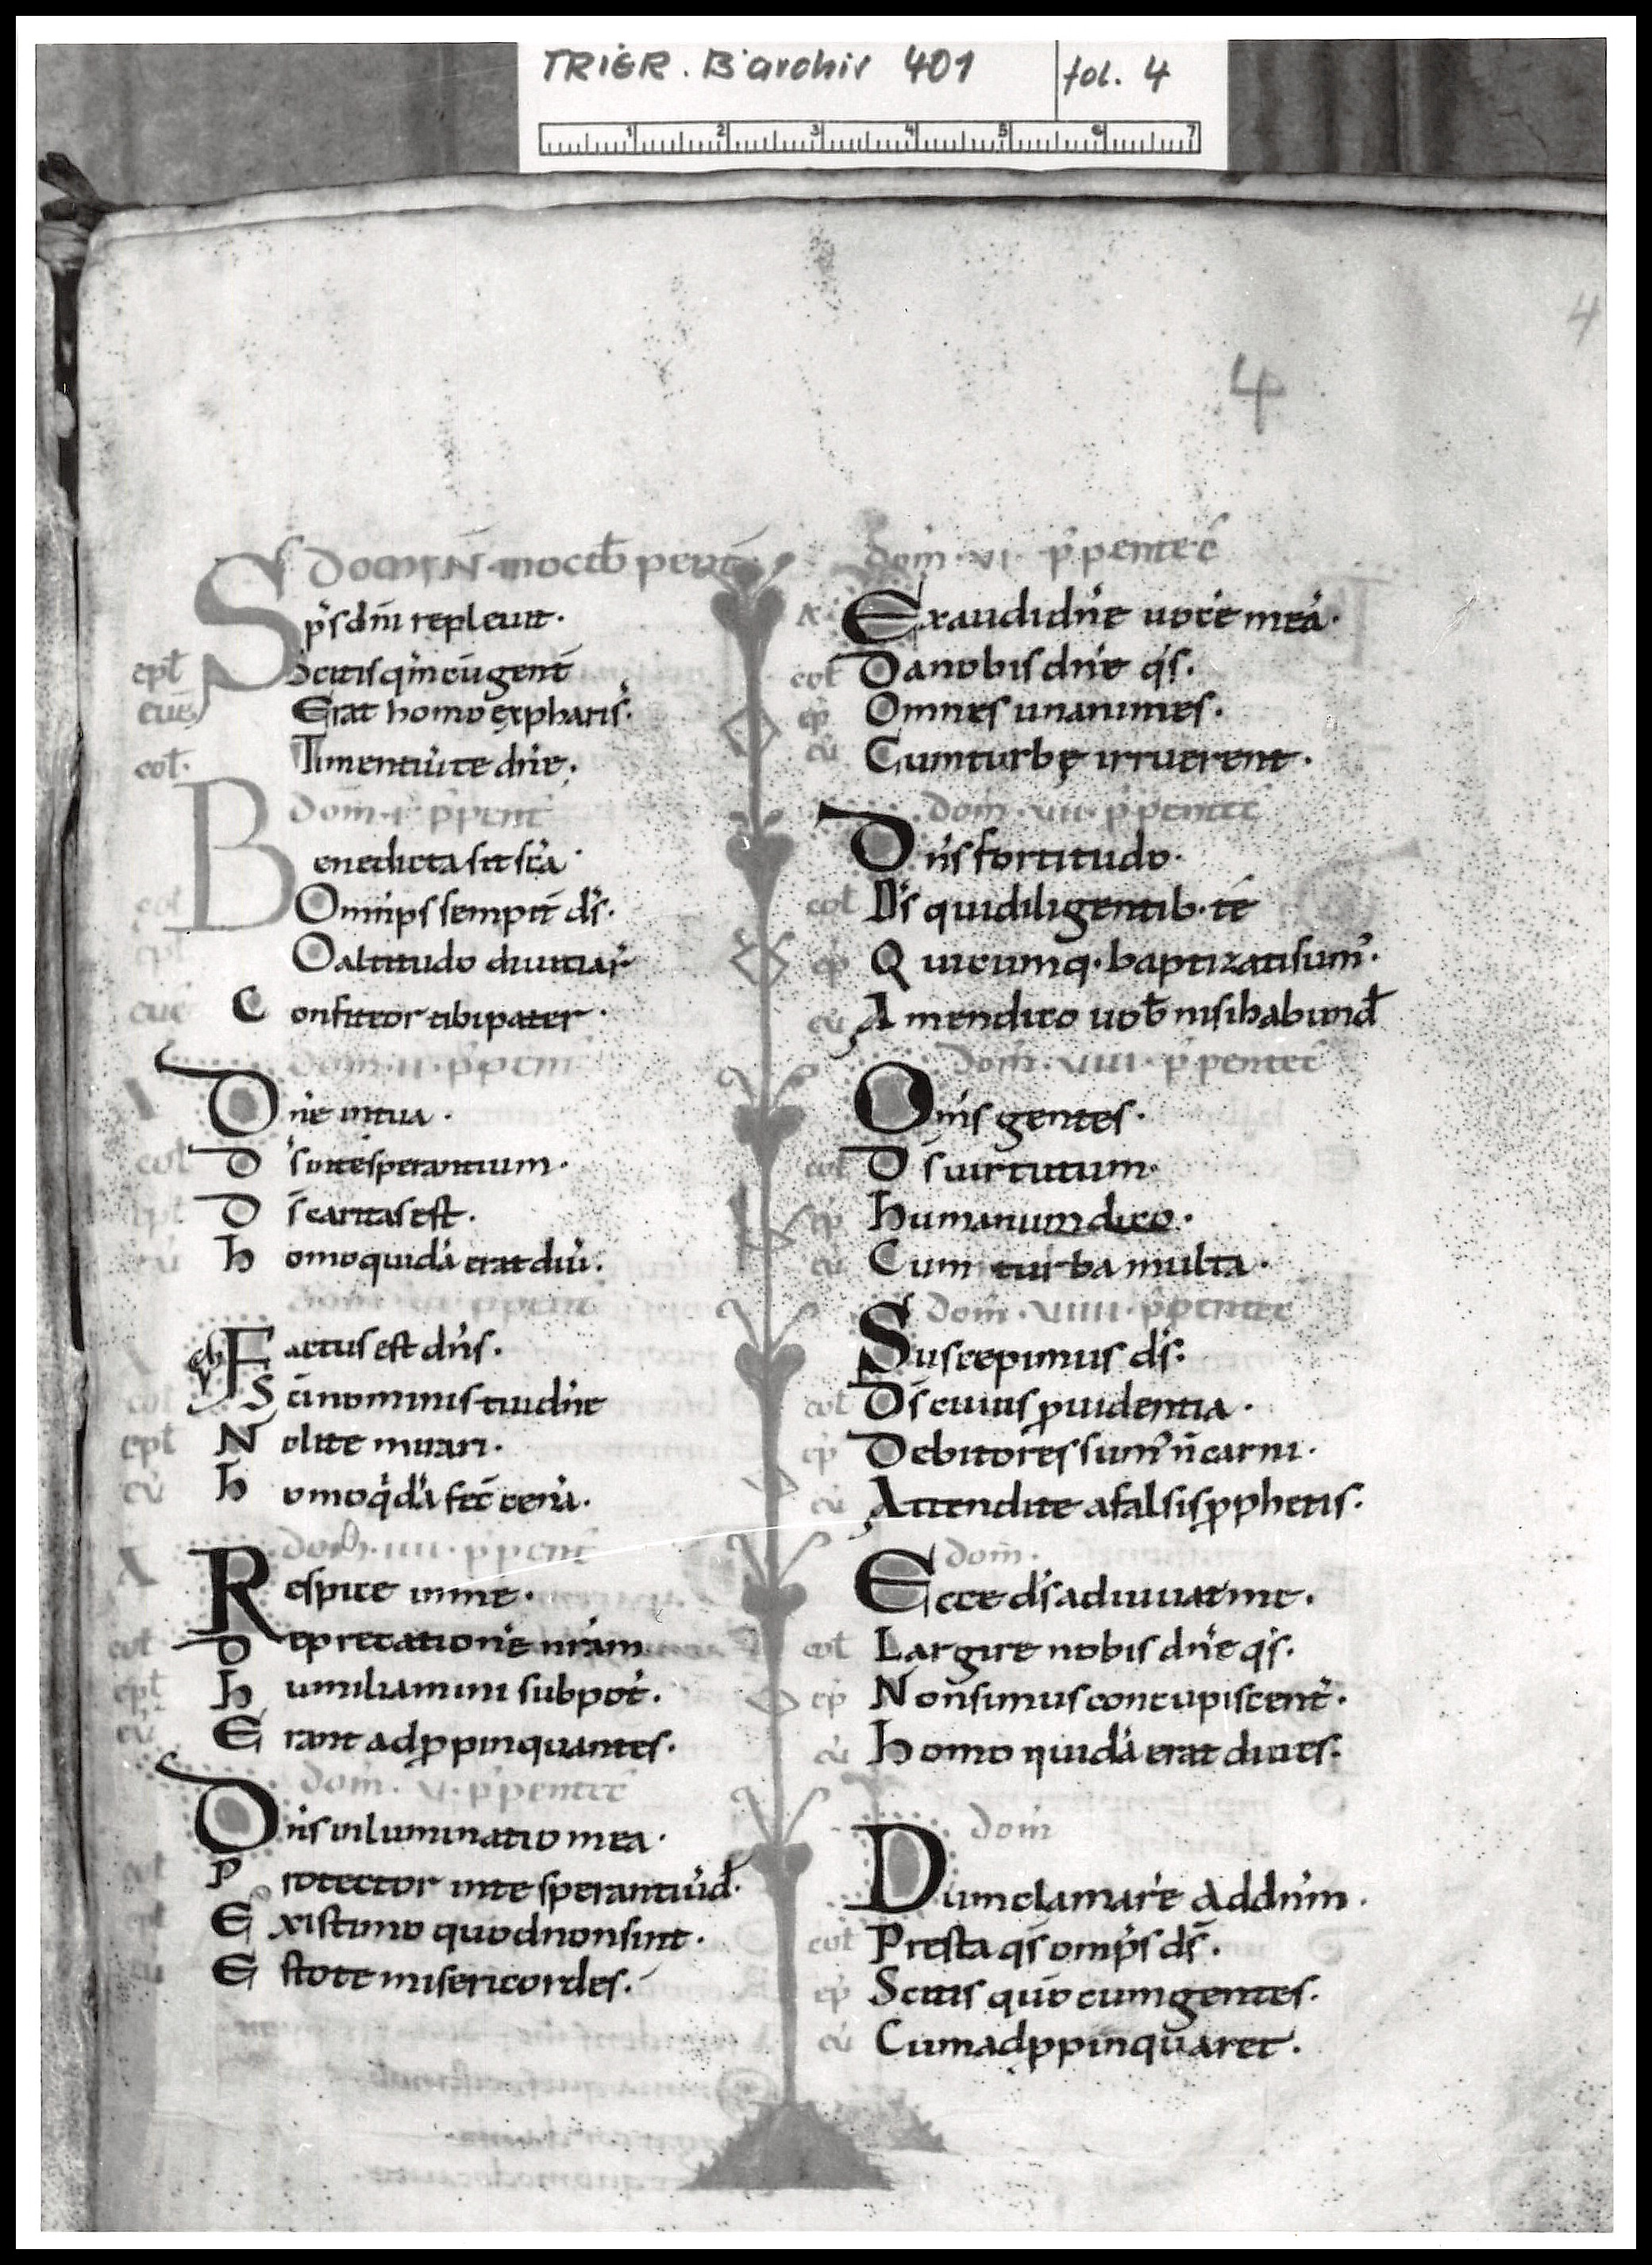 TRIER. B'archiv 401 fol. 4
1 2 3 4 5 6 7
4
4
DOMIN. in octb pent
Sp̄s dn̄i repleuit.
epl Scitis qm̄ cū gent̄
eu̅g Erat homo ex pharis.
col. Timentiū te dn̄e.
dom̄. i. p̄ pent
Benedicta sit sc̄a.
col Omnip̄s sempit̄ ds̄.
epl O altitudo diuitiar
eu̅g Confiteor tibi pater.
dom̄. ii. p̄ pent
Dn̄e in tua.
col Ds̄ in te sperantium.
epl Ds̄ caritas est.
eū homo quidā erat diū.
dom̄. iii. p̄ pent
Factus est dn̄s.
col Sc̄i nominis tui dn̄e
epl Nolite mirari.
eū homo qdā fec̄ cenā.
dom̄. iiii. p̄ pent
Respice in me.
col Deprecationē nr̄am
epl humiliamini sub pot̄.
eū Erant adp̱pinquantes.
dom̄. v. p̄ pentec̄
Dn̄s inluminatio mea.
col Protector in te sperantiū d̄.
epl Existimo quod non sint.
eū Estote misericordes.
dom̄. vi. p̄ pentec̄
A Exaudi dn̄e uocē meā.
col Da nobis dn̄e qs̄.
ep̄ Omnes unanimes.
eū Cum turbę irruerent.
dom̄. vii. p̄ pentec̄
Dn̄s fortitudo.
col Ds̄ qui diligentib. te
ep̄ Quicumq. baptizati sum̄.
eū Amen dico uob̄ nisi habund̄
dom̄. viii. p̄ pentec̄
Om̄s gentes.
col Ds̄ uirtutum.
ep̄ humanum dico.
eū Cum turba multa.
dom̄. viiii. p̄ pentec̄
Suscepimus ds̄.
col Ds̄ cuius ꝓuidentia.
ep̄ Debitores sum̄ n̄ carni.
eū Attendite a falsis ꝓphetis.
dom̄.
Ecce ds̄ adiuuat me.
col Largire nobis dn̄e qs̄.
ep̄ Non simus concupiscent̄.
eū homo quidā erat diues.
dom̄
Dum clamarē ad dn̄m.
col Presta qs̄ omp̄s ds̄.
ep̄ Scitis quō cum gentes.
eū Cum adꝓpinquaret.